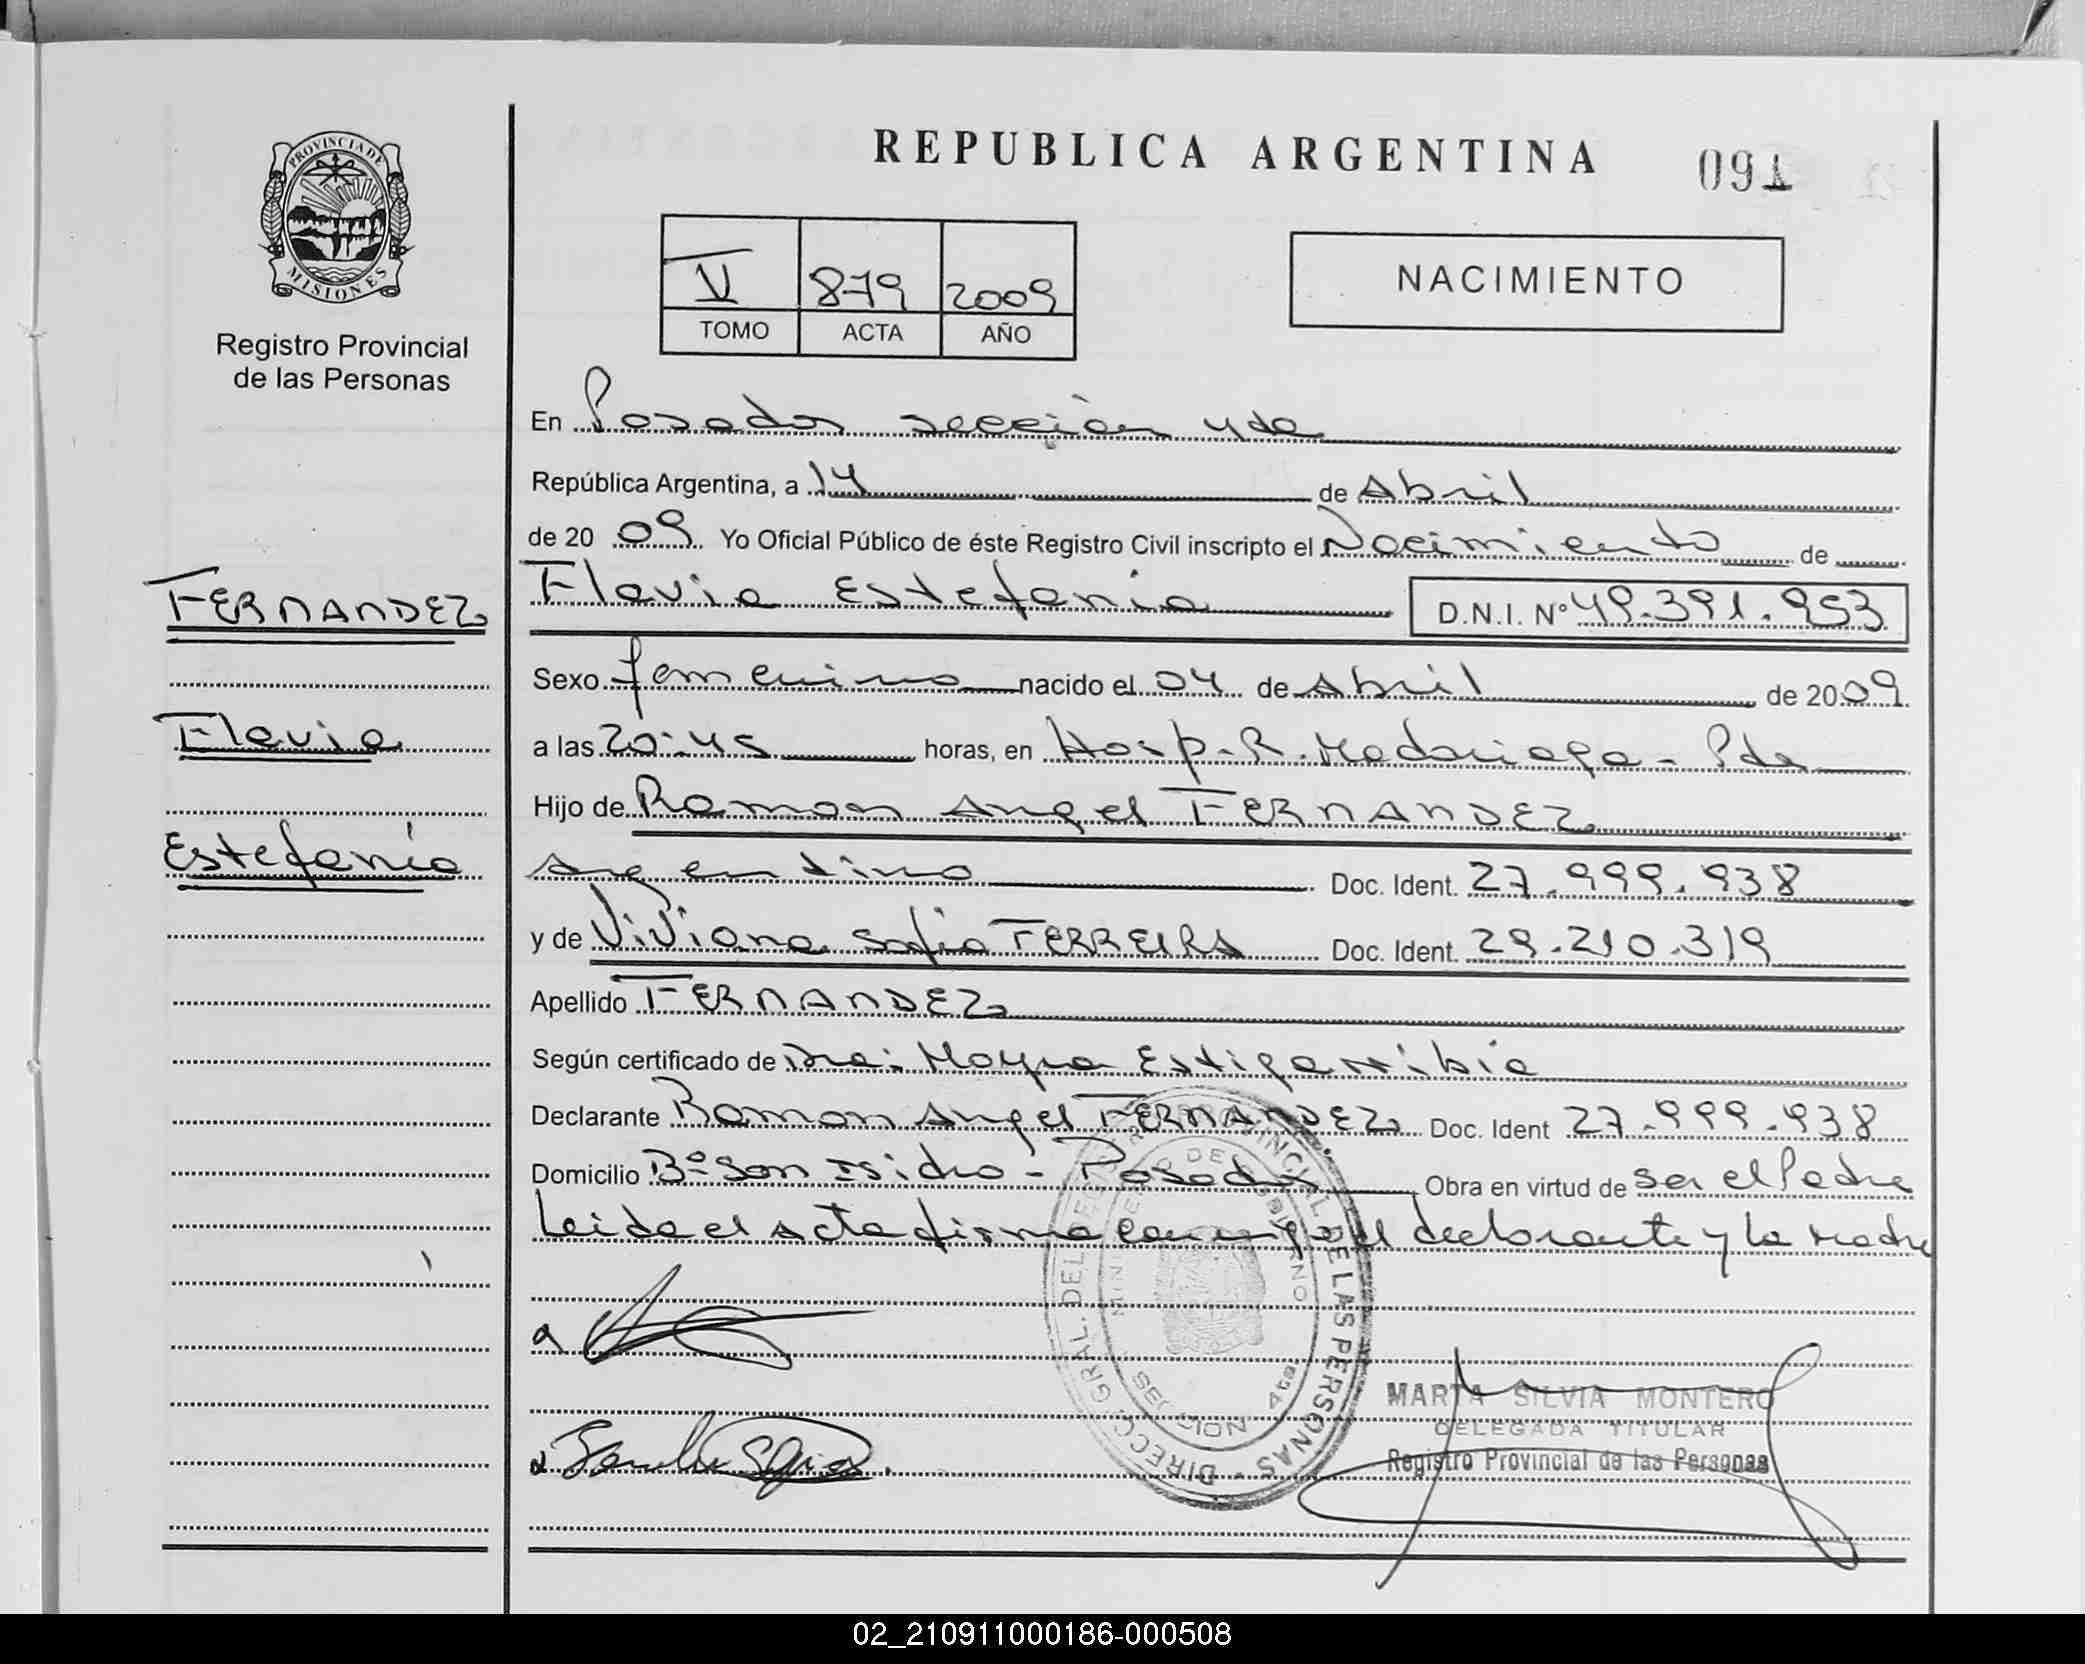 REPUBLICA ARGENTINA 091
PROVINCIA DE
MISIONES
Registro Provincial
de las Personas
V 879 2009
TOMO ACTA AÑO
NACIMIENTO
En Posadas sección 4da
República Argentina, a 14 de Abril
de 2009 Yo Oficial Público de éste Registro Civil inscripto el Nacimiento de
FERNANDEZ
Flavia Estefania D.N.I. Nº 49.391.953
Sexo femenino nacido el 04 de Abril de 2009
Flavia
a las 20:45 horas, en Hosp. R. Madariaga - Pdas
Hijo de Ramon Angel FERNANDEZ
Estefanía
Argentino Doc. Ident. 27.999.938
y de Viviana Sofia FERREIRA Doc. Ident. 29.210.319
Apellido FERNANDEZ
Según certificado de Dra: Mayra Estigarribia
Declarante Ramon Angel FERNANDEZ Doc. Ident 27.999.938
Domicilio Bº San Isidro - Posadas Obra en virtud de ser el Padre
Leida el Acta firma conmigo el declarante y la Madre
DIRECC. GRAL. DEL REG. PROVINCIAL DE LAS PERSONAS
MINISTERIO DE GOBIERNO
SECCION 4ta
MARTA SILVIA MONTERO
DELEGADA TITULAR
Registro Provincial de las Personas
02_210911000186-000508